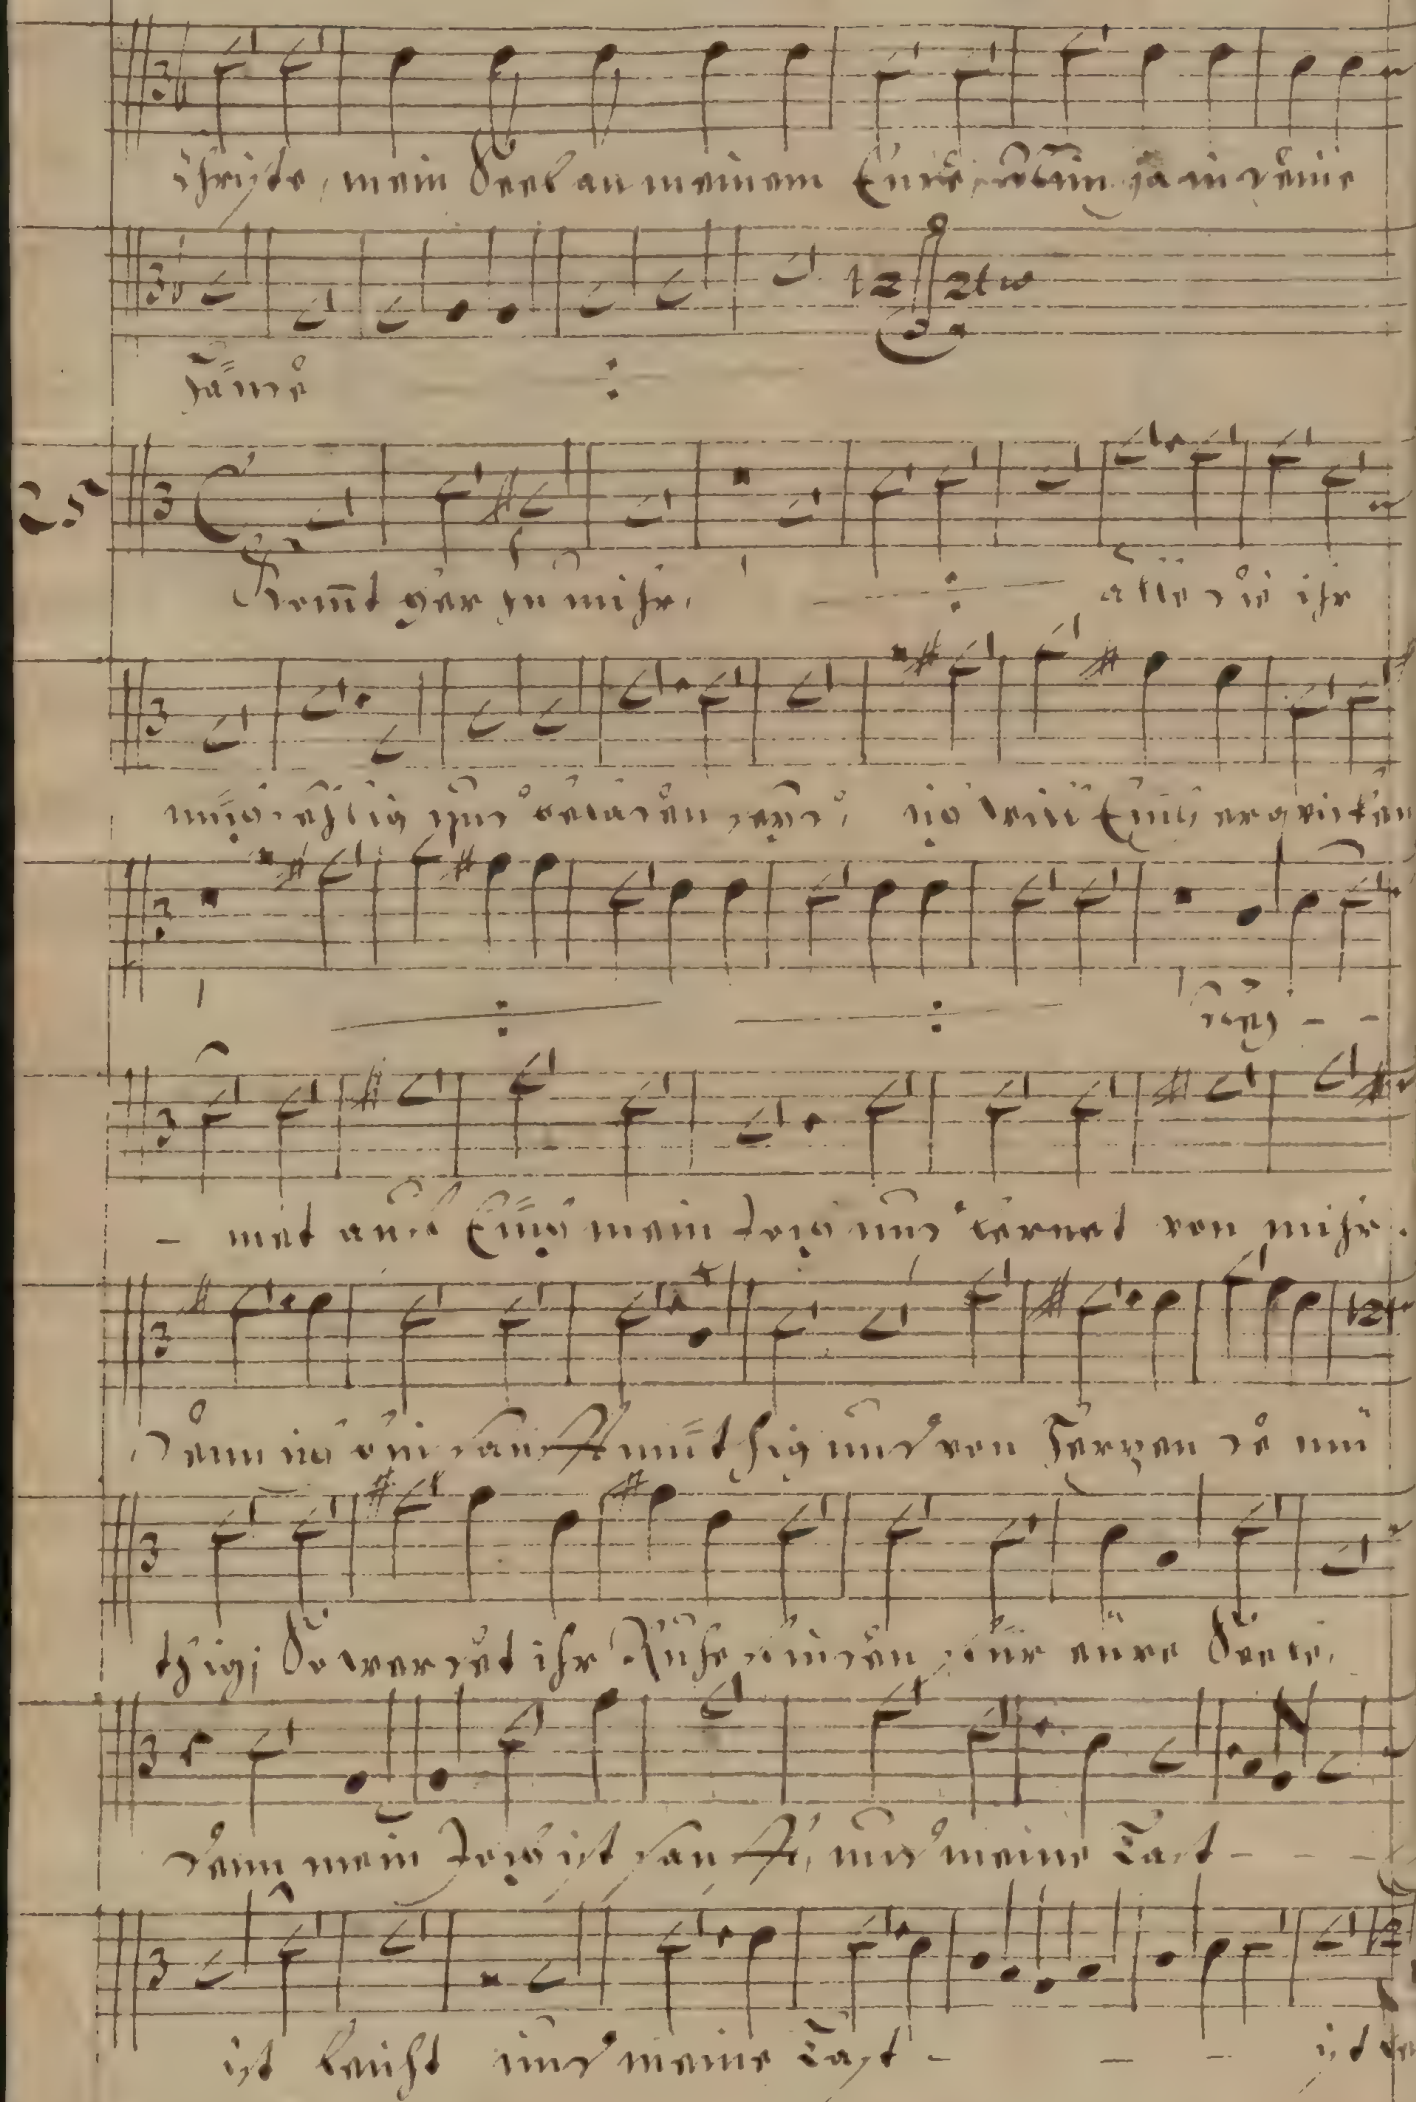 Christe, mein Seel an meinem Ende, nim ja in deine
Hände
Kom̄t her zu mihr, alle die ihr
mühselig und beladen seyd, ich will Euch erquicken
Neh - -
- met auff Euch mein Joch und lernet von mihr.
denn ich bin sanfftmüthig und von Hertzen de mü
thig, So werdet ihr Ruhe finden für eure Seele,
denn mein Joch ist sanfft, und meine Last - - -
ist leicht und meine Last - - - ist